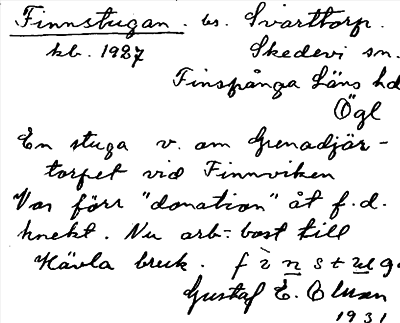 Finnstugan. bs. Svarttorp.
kb. 1927 Skedevi sn.
Finspånga Läns hd
Ögl
En stuga v. om Grenadjär-
torpet vid Finnviken
Var förr "donation" åt f.d.
knekt. Nu arb:-bost till
Hävla bruk. fìnstug
Gustaf E. Olsson
1931